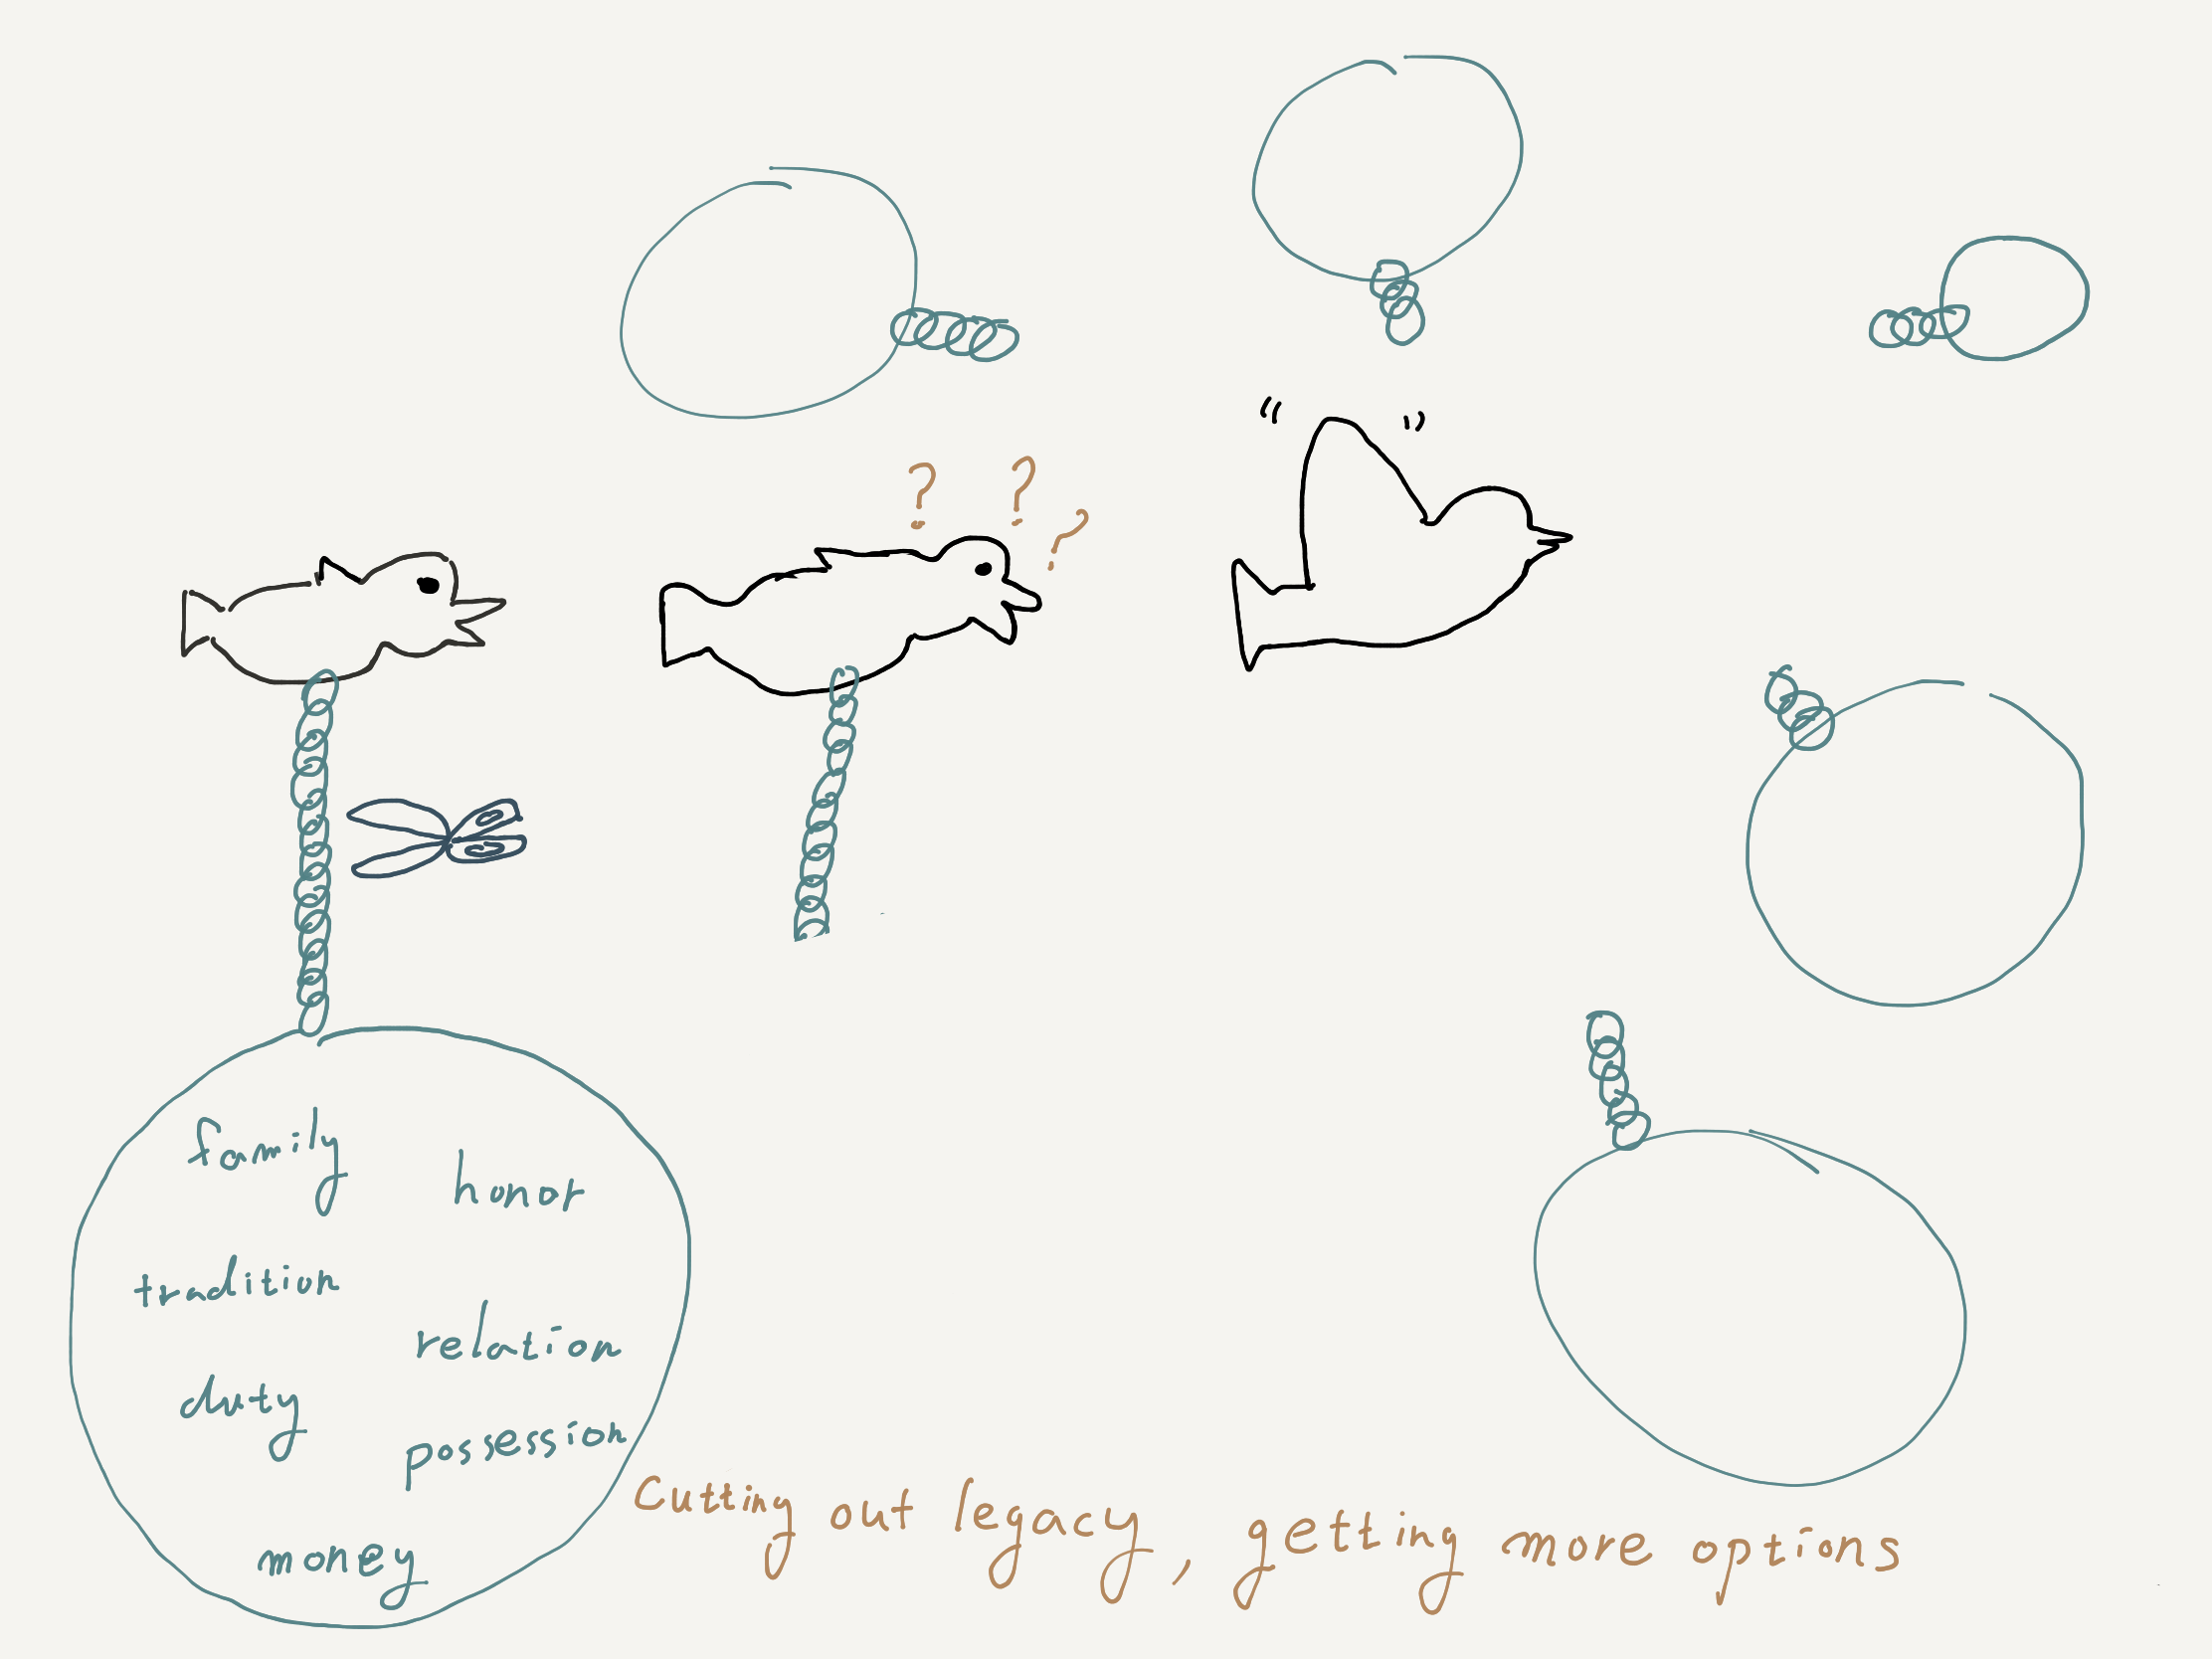 ? ? ?
family
honor
tradition
relation
duty
possession
money
Cutting out legacy, getting more options